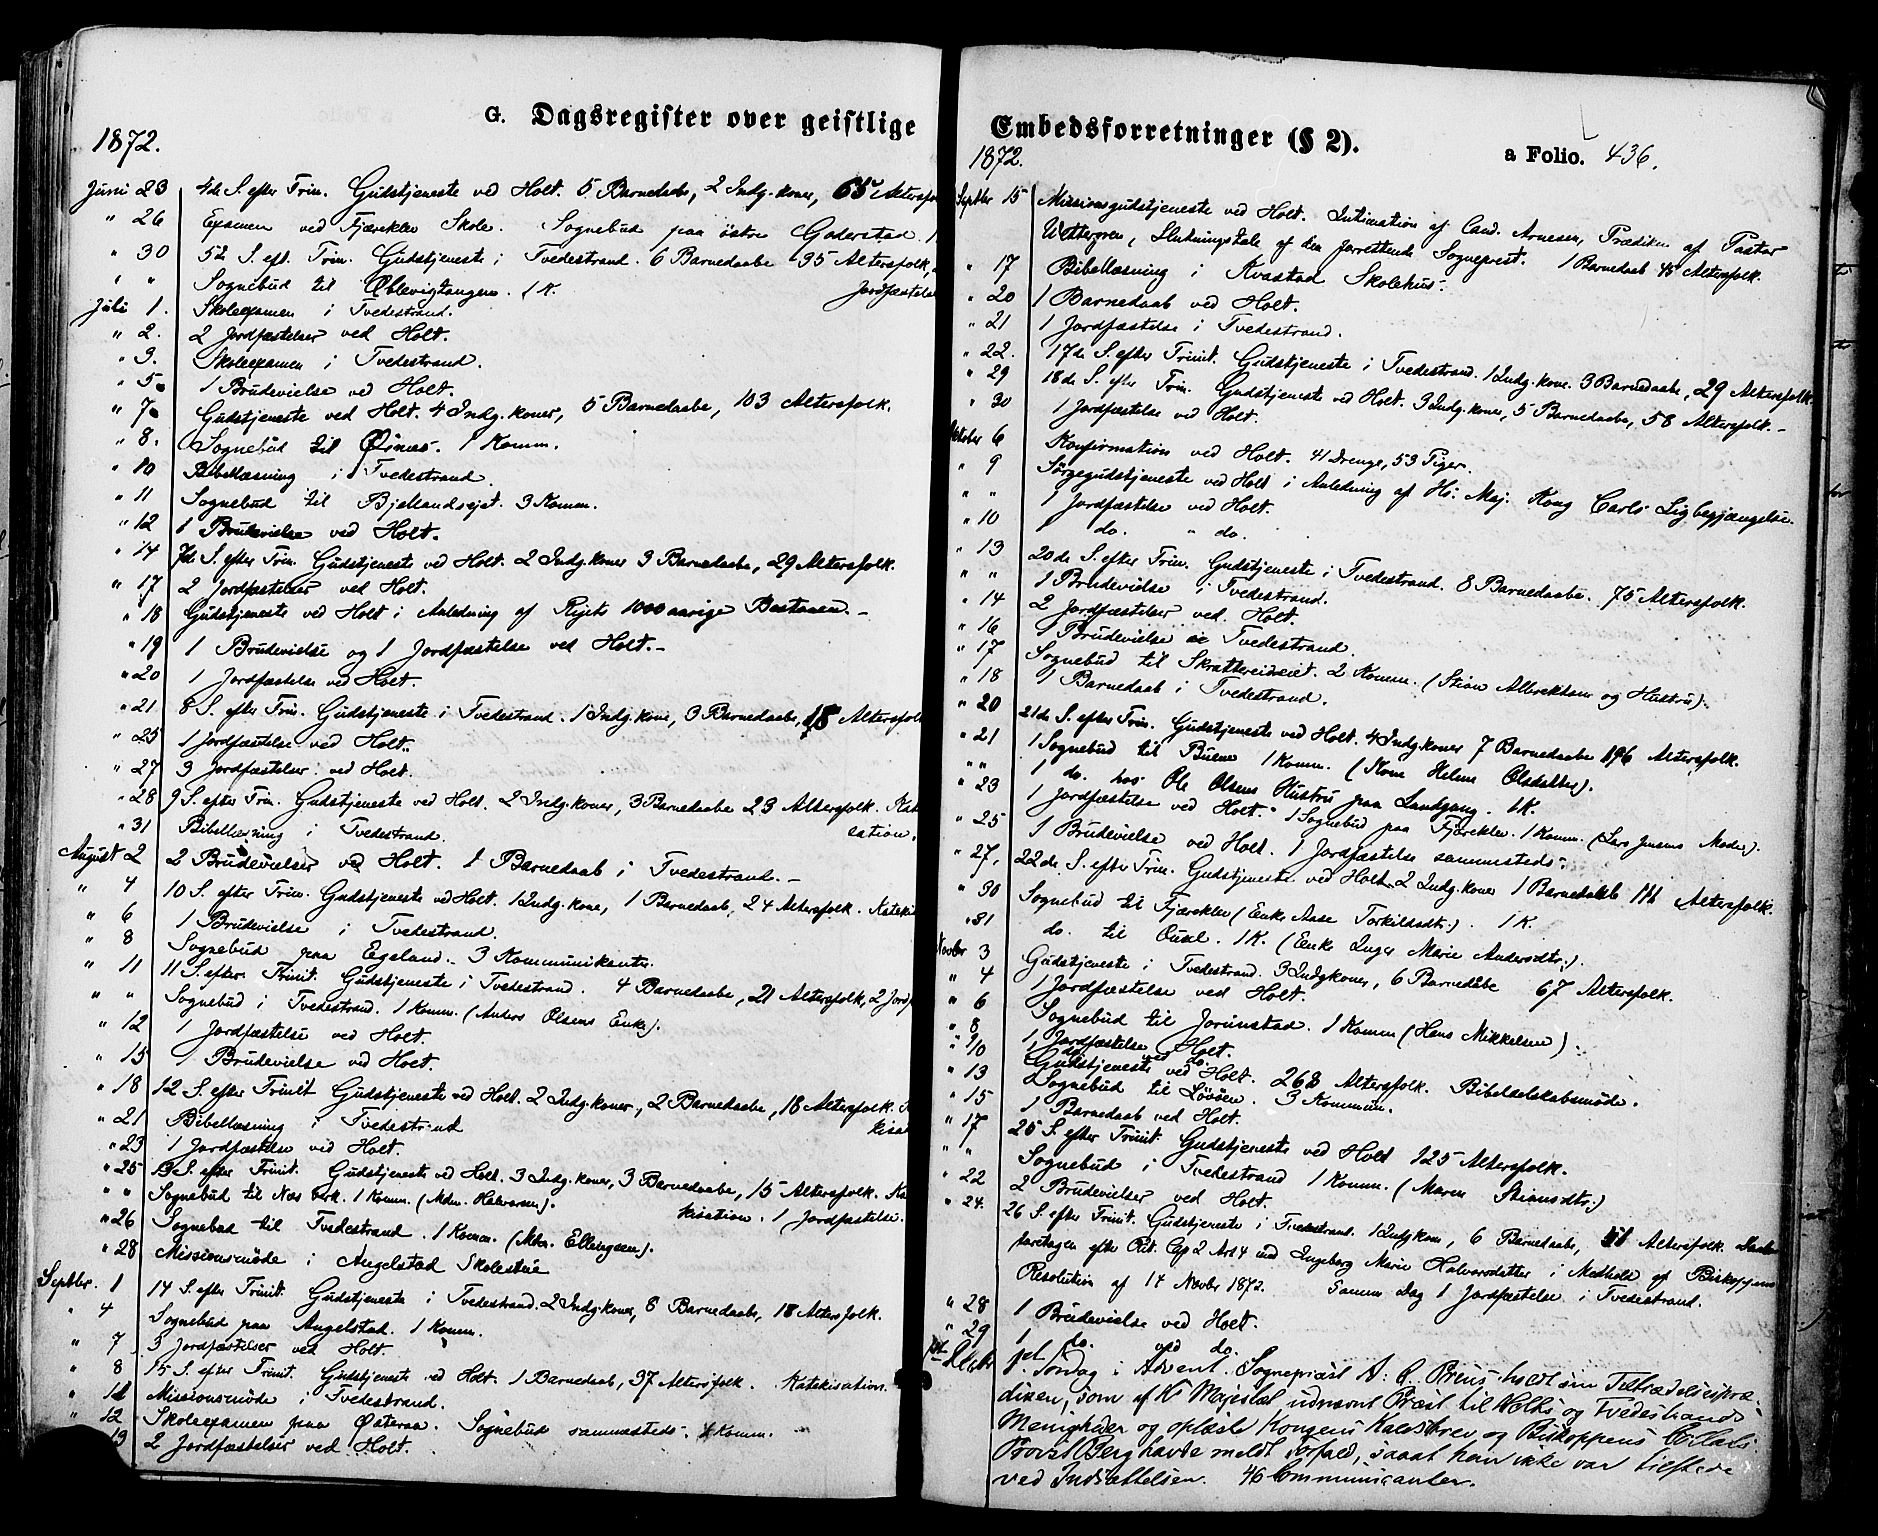 G. Dagsregister over geistlige
1872.
Juni 23 4de S. efter Trin. Gudstjeneste ved Holt. 5 Barnedaabe, 2 Indg.koner, 65 Altersfo
" 26 Examen ved Fjærekler Skole. Sognebud paa østre Goderstad. 1
" 30 5te S. eft. Trin. Gudstjeneste i Tvedestrand. 6 Barnedaabe 35 Altersfolk,
" " Sognebud til Øblevigtangen. 1 K. Jordfæstelse
Juli 1. Skoleexamen i Tvedestrand.
" 2. 2 Jordfæstelser ved Holt.
" 3. Skoleexamen i Tvedestrand.
" 5. 1 Brudevielse ved Holt.
" 7. Gudstjeneste ved Holt. 4 Indg.koner, 5 Barnedaabe, 103 Altersfolk.
" 8. Sognebud til Øinæs. 1 Komm.
" 10 Bibellæsning i Tvedestrand.
" 11 Sognebud til Bjellandsejet. 3 Komm.
" 12 1 Brudevielse ved Holt.
" 14 7de S. efter Trin. Gudstjeneste ved Holt. 2 Indg.koner 3 Barnedaabe, 29 Altersfolk.
" 17 2 Jordfæstelser ved Holt.
" 18 Gudstjeneste ved Holt i Anledning af Rigets 1000 aarige Bestaaen.–
" 19 1 Brudevielse og 1 Jordfæstelse ved Holt.–
" 20 1 Jordfæstelse ved Holt.
" 21 8 S. efter Trin. Gudstjeneste i Tvedestrand. 1 Indg.kone, 3 Barnedaabe, 15 Altersfolk
" 25 1 Jordfæstelse ved Holt.
" 27 3 Jordfæstelser ved Holt.
" 28 9 S. efter Trin. Gudstjeneste ved Holt. 2 Indg.koner, 3 Barnedaabe 23 Altersfolk. Kate
sation.
" 31 Bibellæsning i Tvedestrand.
August 2 2 Brudevielser ved Holt. 1 Barnedaab i Tvedestrand.–
" 4 10 S. efter Trin. Gudstjeneste ved Holt. 1 Indg.kone, 1 Barnedaab, 24 Altersfolk. Kateki
" 6 1 Brudevielse i Tvedestrand.
" 8 Sognebud paa Egeland. 3 Kommunikanter.
" 11 11 S. efter Trinit. Gudstjeneste i Tvedestrand. 4 Barnedaabe, 21 Altersfolk, 2 Jordf
" " Sognebud i Tvedestrand. 1 Komm. (Anders Olsens Enke).
" 12 1 Jordfæstelse ved Holt.
" 15 1 Brudevielse ved Holt.
" 18 12 S. efter Trinit Gudstjeneste ved Holt. 2 Indg.koner, 2 Barnedaabe, 18 Altersfolk.
kisat
" 21 Bibellæsning i Tvedestrand
" 23 1 Jordfæstelse ved Holt.
" 25 13 S. efter Trinit. Gudstjeneste ved Holt. 3 Indg.koner, 3 Barnedaabe, 15 Altersfolk. Kat
" " Sognebud til Næs Verk. 1 Komm. (Mdm. Halvorsen). kisation. 1 Jordfæstelse.
" 26 Sognebud til Tvedestrand. 1 Komm. (Mdm. Ellingsen).
" 28 Missionsmöde i Angelstad Skolestue
Septbr. 1 14 S. efter Trinit. Gudstjeneste i Tvedestrand. 2 Indg.koner, 8 Barnedaabe, 18 Altersfolk.
" 4 Sognebud paa Angelstad. 1 Komm.
" 7 3 Jordfæstelser ved Holt.
" 8 15 S. efter Trinit. Gudstjeneste ved Holt. 1 Barnedaab, 37 Altersfolk. Katekisation.
" 11 Missionsmøde i Tvedestrand.
" 12 Skoleexamen paa Østeraa. Sognebud sammesteds. 1 Komm.
13 2 Jordfæstelser ved Holt.
Embedsforretninger (§ 2).
a Folio. 436.
1872.
Septbr 15 Missionsgudstjeneste ved Holt. Intimation af Cand. Arnesen, Prædiken af Pastor
Wetteren, Slutningstale af den forrettende Sogneprest. 1 Barnedaab 45 Altersfolk.
" 17 Bibellæsning i Kvastad Skolehus.
" 20 1 Barnedaab ved Holt.
" 21 1 Jordfæstelse i Tvedestrand.
" 22. 17de S. efter Trinit. Gudstjeneste i Tvedestrand. 1 Indg.kone. 3 Barnedaabe, 29 Altersfolk.
" 29 18de S. efter Trin. Gudstjeneste ved Holt. 3 Indg.koner, 5 Barnedaabe, 58 Altersfolk.–
" 30 1 Jordfæstelse ved Holt.
Oktober 6 Konfirmation ved Holt. 41 Drenge, 53 Piger.
" 9 Sørgegudstjeneste ved Holt i Anledning af Hs. Maj. Kong Carls Ligbegjængelse.
" " 1 Jordfæstelse ved Holt.
" 10 1 do. " do.
" 13 20de S. efter Trin. Gudstjeneste i Tvedestrand. 8 Barnedaabe. 75 Altersfolk.
" " 1 Brudevielse i Tvedestrand.
" 14 2 Jordfæstelser ved Holt.
" 16 1 Brudevielse i Tvedestrand.
" 17 Sognebud til Skrattereidseiet. 2 Komm. (Stian Albrektsen og Hustru).
" 18 1 Barnedaab i Tvedestrand.
" 20 21de S. efter Trin. Gudstjeneste ved Holt. 4 Indg.koner 7 Barnedaabe 196 Altersfolk.
" 21 1 Sognebud til Buene 1 Komm. (Kone Helene Olsdatter).
" " 1 do. hos Ole Olsens Hustru paa Landgang. 1 K.
" 23 1 Jordfæstelse ved Holt. 1 Sognebud paa Fjærekler. 1 Komm. (Lars Jensens Moder).
" 25 1 Brudevielse ved Holt. 1 Jordfæstelse sammesteds.
" 27. 22de S. efter Trin. Gudstjeneste ved Holt. 2 Indg.koner 1 Barnedaab 111 Altersfolk.
" 30 Sognebud til Fjærekler (Enke Aase Torkildsdtr.). 1 K.
" 31 do. til . 1 K. (Enke Inger Marie Andersdtr.).
Novbr 3 Gudstjeneste i Tvedestrand. 3 Indgkoner, 6 Barnedåbe 67 Altersfolk.
" 4 1 Jordfæstelse ved Holt.
" 6 Sognebud til Jorunstad. 1 Komm (Hans Mikkelsen).
" 8 1 Jordfæstelse Holt.
" 9 1 do. ved do.
" 10 Gudstjeneste ved Holt. 268 Altersfolk. Bibelselskabsmøde.
" 13 Sognebud til Løvåen. 3 Kommun.
" 15 1 Barnedaab ved Holt.
" 17 25 S. efter Trinit. Gudstjeneste ved Holt 125 Altersfolk.
" " Sognebud i Tvedestrand 1 Komm. (Maren Stiansdtr.)
" 22 2 Brudevielser ved Holt.
" 24. 26 S. efter Trinit. Gudstjeneste i Tvedestrand. 1 Indgkone, 6 Barnedaabe, Altersfolk.
foretagen efter Rit. Cp 2 Art 4 med Ingeborg Marie Halvorsdatter i Medhold af Biskoppens
Resolution af 14 Novbr 1872. Samme Dag 1 Jordfæstelse i Tvedestrand.
" 28 1 Brudevielse ved Holt.
" 29 1 do. ved do.
1st Decbr 1st Søndag i Advent. Sognepræst A. C. Preus holdt sin Tiltrædelsespræ-
diken, som af Ks Majestæt udnævnt Præst til Holts og Tvedestrands
Menigheder og oplæste Kongens Kaldsbrev og Biskoppens Collats.
Provst Berg havde meldt Forfald, saaat han ikke var tilstede
ved Indsættelsen. 46 Communicanter.